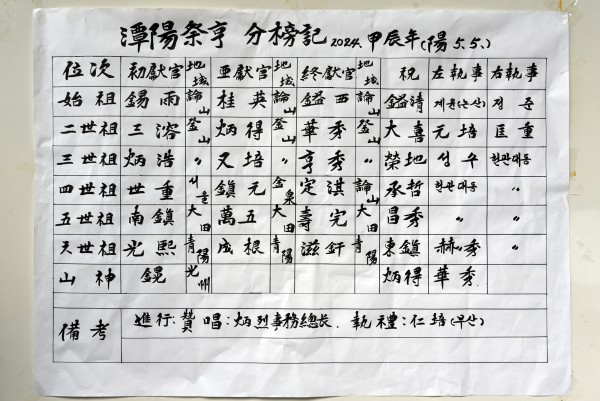 潭陽祭亨 分榜記 2024. 甲辰年(陽 5.5.)
位次 初獻官 地域 亜獻官 地域 終獻官 地域 祝 左執事 右執事
始祖 錫雨 論山 桂英 論山 鎰西 論山 鎰清 계윤(논산) 정준
二世祖 三溶 釜山 炳得 釜山 華秀 釜山 大喜 元培 匡重
三世祖 炳浩 〃 又培 〃 亨秀 〃 榮地 성수 헌관대동
四世祖 世重 서울 鎭元 金泉 定淇 論山 承哲 헌관대동 〃
五世祖 南鎭 大田 萬五 大田 壽完 大田 昌秀 〃 〃
六世祖 光熙 青陽 成根 青陽 滋釬 青陽 東鎭 赫秀 〃
山神 錕 光州 炳得 華秀
備考 進行:贊唱:炳烈事務總長. 執禮:仁培(부산)